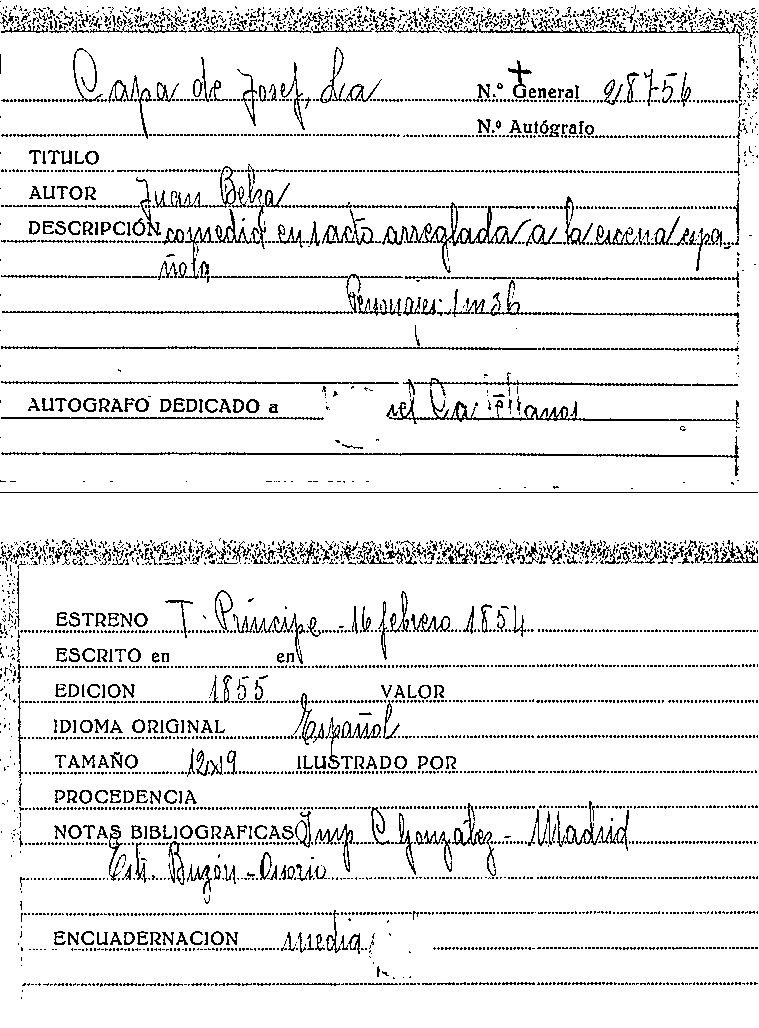 Capa de Josef, La
N.º General 28756
N.º Autógrafo
TITULO
AUTOR Juan Belza
DESCRIPCIÓN comedia en 1 acto arreglada a la escena espa-
ñola
Personajes: 1m 3h
AUTOGRAFO DEDICADO a Castellanos
ESTRENO T. Príncipe - 16 febrero 1854
ESCRITO en en
EDICION 1855 VALOR
IDIOMA ORIGINAL Español
TAMAÑO 12x19 ILUSTRADO POR
PROCEDENCIA
NOTAS BIBLIOGRAFICAS Imp C. González - Madrid
Estr. Buzón - Osorio
ENCUADERNACION media